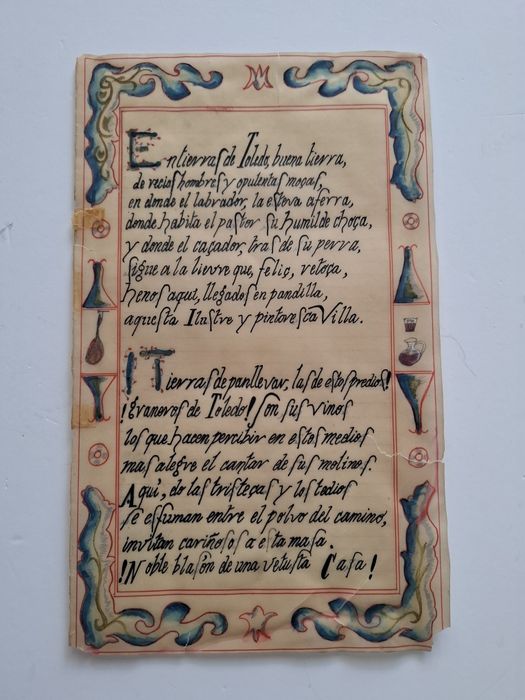 En tierras de Toledo, buena tierra,
de recios hombres y opulentas moças,
en donde el labrador, la esteva aferra,
donde habita el pastor su humilde choça,
y donde el caçador, tras de su perra,
sigue a la lievre que, feliç, retoça,
henos aqui, llegados en pandilla,
aquesta Ilustre y pintoresca Villa.
¡Tierras de panllevar, las de estos predios!
¡graneros de Toledo! son sus vinos
los que hacen percibir en estos medios
mas alegre el cantar de sus molinos.
Aqui, do las tristeças y los tedios
se essuman entre el polvo del camino,
invitan cariñosos a esta masa.
¡Noble blasón de una vetusta Casa!